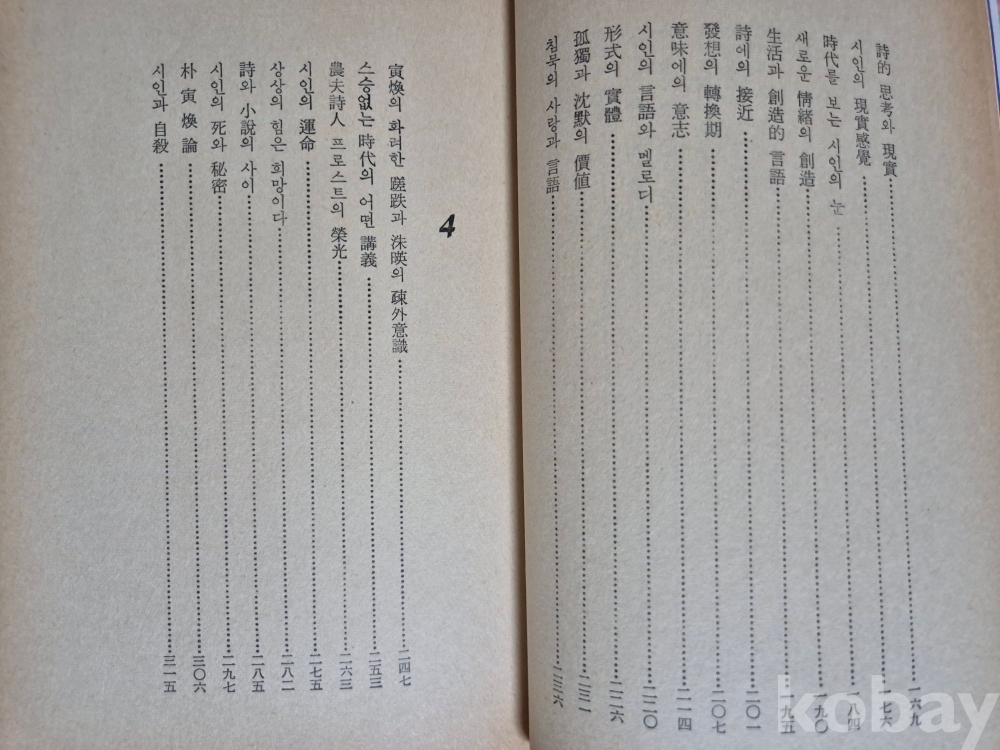 詩的 思考와 現實 … 一六九
시인의 現實感覺 … 一七六
時代를 보는 시인의 눈 … 一八四
새로운 情緒의 創造 … 一九〇
生活과 創造的 言語 … 一九五
詩에의 接近 … 二〇一
發想의 轉換期 … 二〇七
意味에의 意志 … 二一四
시인의 言語와 멜로디 … 二二〇
形式의 實體 … 二二六
孤獨과 沈默의 價値 … 二三一
침묵의 사랑과 言語 … 二三六
4
寅煥의 화려한 蹉跌과 洙暎의 疎外意識 … 二四七
스승없는 時代의 어떤 講義 … 二五三
農夫詩人 프로스트의 榮光 … 二六三
시인의 運命 … 二七五
상상의 힘은 희망이다 … 二八二
詩와 小說의 사이 … 二八五
시인의 死와 秘密 … 二九七
朴 寅 煥 論 … 三〇六
시인과 自殺 … 三一五
kobay